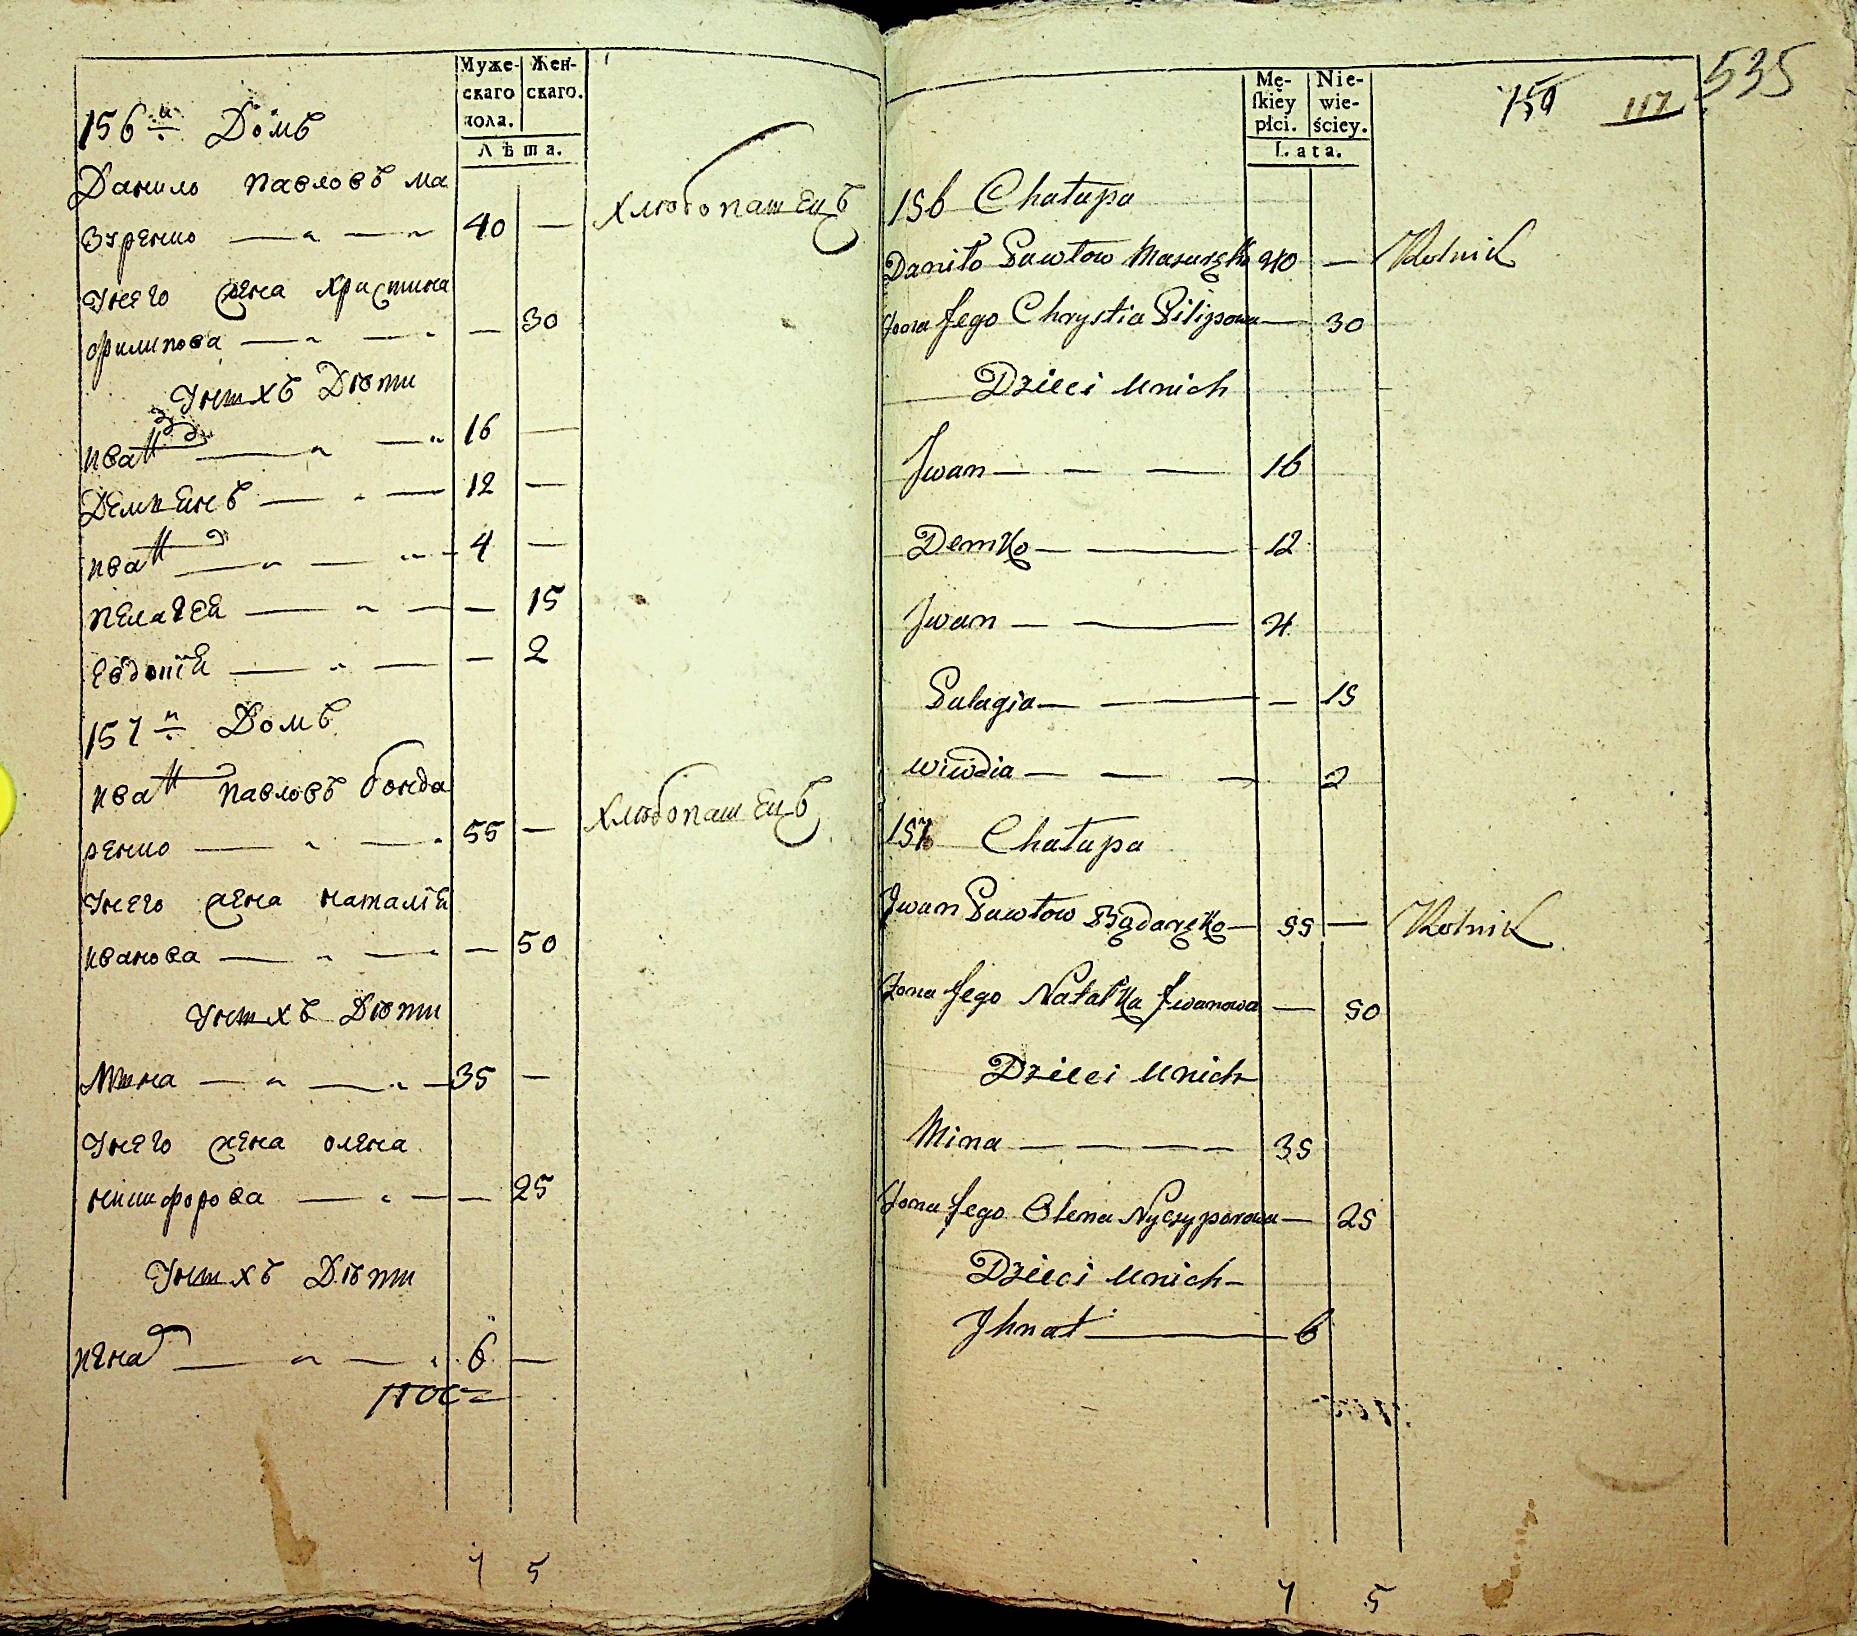 Муже- Жен-
скаго скаго.
пола.
Лѣта.
156й Домъ
Данило Павловъ Ма
зуренко 40 — Хлѣбопашецъ
У него жена Христина
Филипова — 30
У нихъ Дѣти
Иванъ 16 —
12 —
Иванъ 4 —
Пелагея — 15
— 2
157й Домъ
Иванъ Павловъ Бонда
ренко 55 — Хлѣбопашецъ
У него жена Наталiя
Иванова — 50
У нихъ Дѣти
Мина 35 —
У него жена Олена
Никифорова — 25
У нихъ Дѣти
Игнат 6 —
7 5
535
150 117
Mę- Nie-
skiey wie-
płci. ściey.
Lata.
156 Chałupa
Daniło Pawłow Mazuręko 40 — Rolnik
Żona Jego Chrystia Pilipowa — 30
Dzieci Unich
Jwan 16
Demko 12
Jwan 4
Palagia — 15
Wiwdia — 2
157 Chałupa
Jwan Pawłow Bądaręko 55 — Rolnik
Żona Jego Natałka Jwanowa — 50
Dzieci Unich
Mina 35
Żona Jego Olena Nyczyporowa — 25
Dzieci Unich
Jhnat 6
7 5